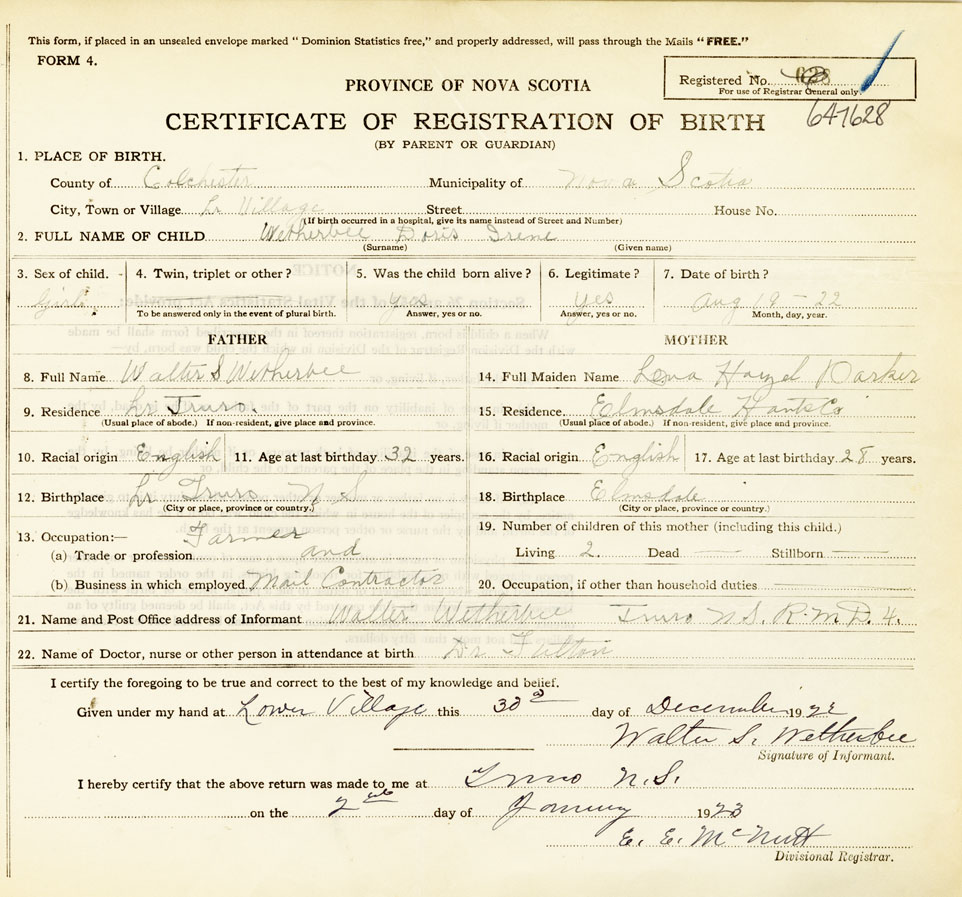 This form, if placed in an unsealed envelope marked "Dominion Statistics free," and properly addressed, will pass through the Mails "FREE."
FORM 4.
PROVINCE OF NOVA SCOTIA
Registered No.
For use of Registrar General only.
647628
CERTIFICATE OF REGISTRATION OF BIRTH
(BY PARENT OR GUARDIAN)
1. PLACE OF BIRTH.
County of Colchester Municipality of Nova Scotia
City, Town or Village Lr Village Street House No.
(If birth occurred in a hospital, give its name instead of Street and Number)
2. FULL NAME OF CHILD Wetherbee Doris Irene
(Surname) (Given name)
3. Sex of child. 4. Twin, triplet or other? 5. Was the child born alive? 6. Legitimate? 7. Date of birth?
Girl yes yes Aug 19 - 22
To be answered only in the event of plural birth. Answer, yes or no. Answer, yes or no. Month, day, year.
FATHER MOTHER
8. Full Name Walter S Wetherbee 14. Full Maiden Name Lena Hazel Parker
9. Residence Lr Truro. 15. Residence. Elmsdale Hants Co
(Usual place of abode.) If non-resident, give place and province. (Usual place of abode.) If non-resident, give place and province.
10. Racial origin English 11. Age at last birthday 32 years. 16. Racial origin English 17. Age at last birthday 28 years.
12. Birthplace Lr Truro N S 18. Birthplace Elmsdale
(City or place, province or country.) (City or place, province or country.)
13. Occupation:— Farmer 19. Number of children of this mother (including this child.)
(a) Trade or profession and Living 2. Dead Stillborn
(b) Business in which employed Mail Contractor 20. Occupation, if other than household duties
21. Name and Post Office address of Informant Walter Wetherbee Truro N S. R. M. D. 4.
22. Name of Doctor, nurse or other person in attendance at birth Dr Fulton
I certify the foregoing to be true and correct to the best of my knowledge and belief.
Given under my hand at Lower Village this 30 day of December 1922
Walter S. Wetherbee
Signature of Informant.
I hereby certify that the above return was made to me at Truro N.S.
on the 2nd day of January 1923
E. E. McNutt
Divisional Registrar.